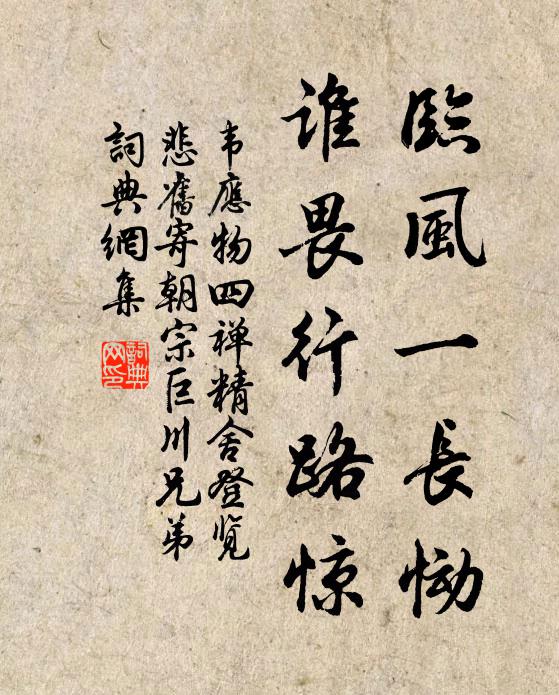 臨風一長恸
谁畏行路惊
韦應物四禅精舍登览
悲舊寄朝宗巨川兄弟
詞典網集
詞典网印